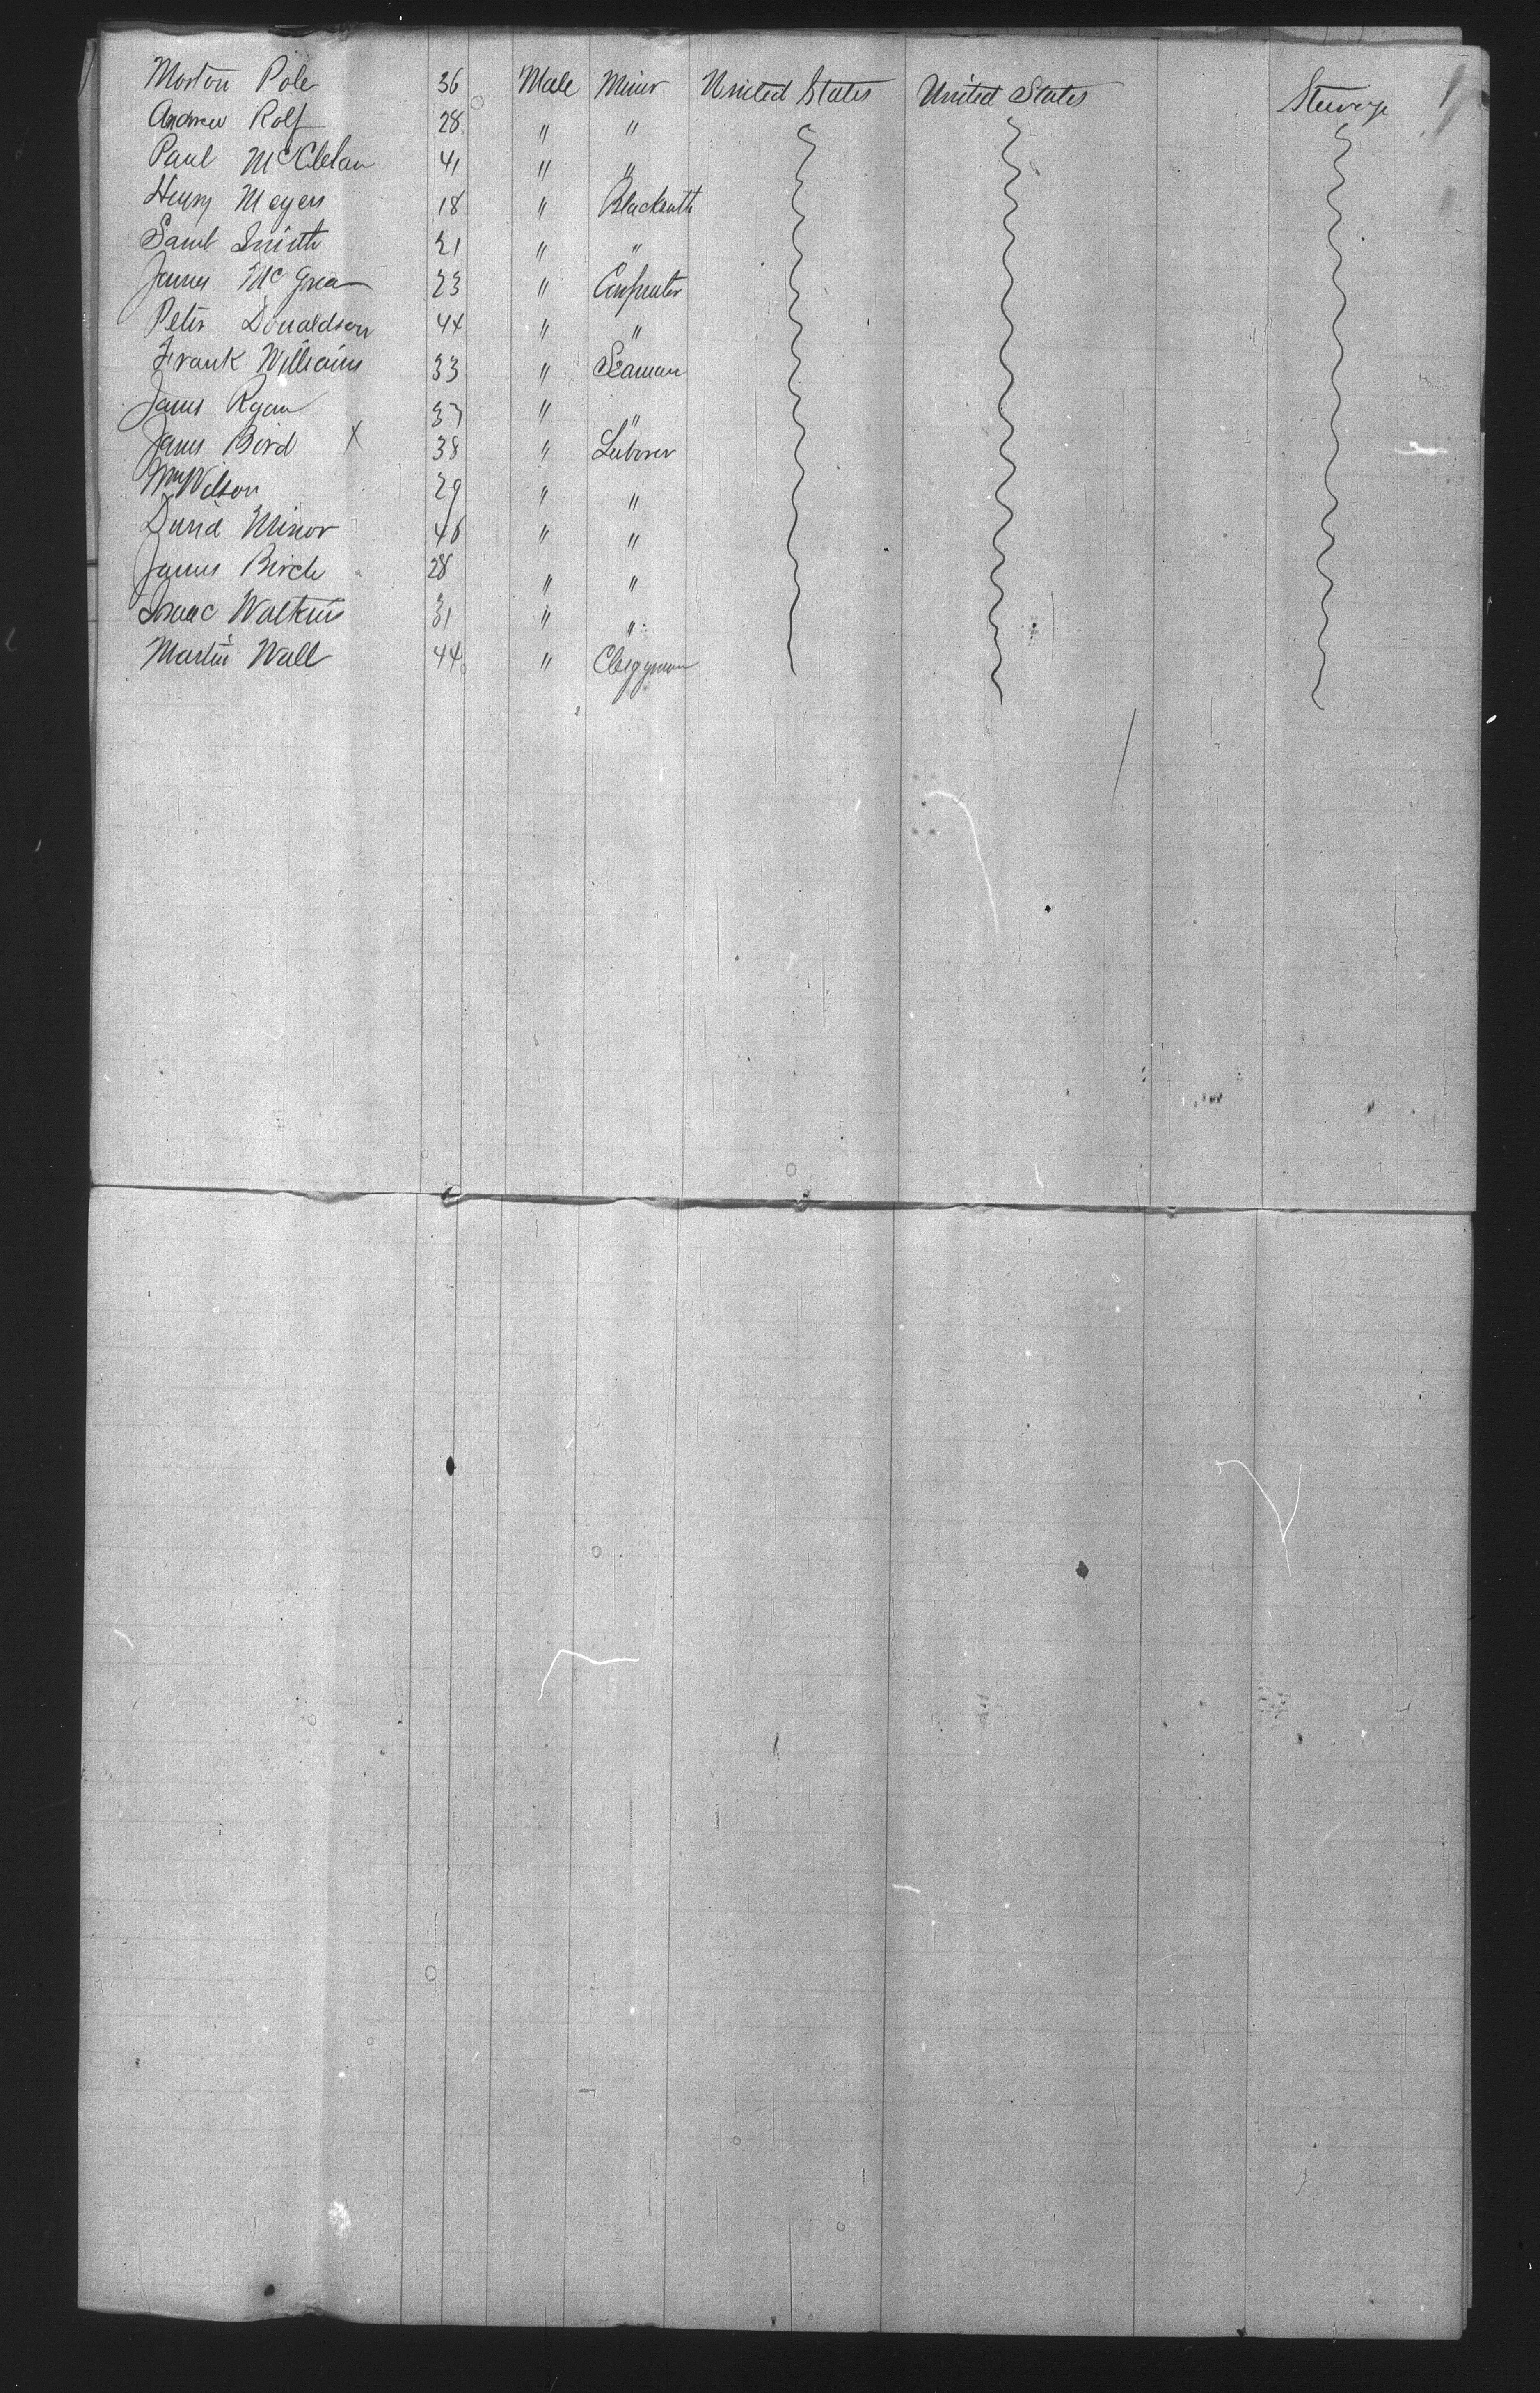 Morton Pole 36 Male Miner United States United States Steerage
Andrew Rolf 28 " "
Paul McClelan 41 " "
Henry Meyers 18 " Blacksmith
Saml Smith 21 " "
James McGrea 23 " Carpenter
Peter Donaldson 44 " "
Frank Williams 33 " Seaman
James Ryan 37 " "
James Bird X 38 " Laborer
Wm Wilson 29 " "
David Minor 46 " "
James Birch 28 " "
Isaac Watkins 31 " "
Martin Wall 44 " Clergyman